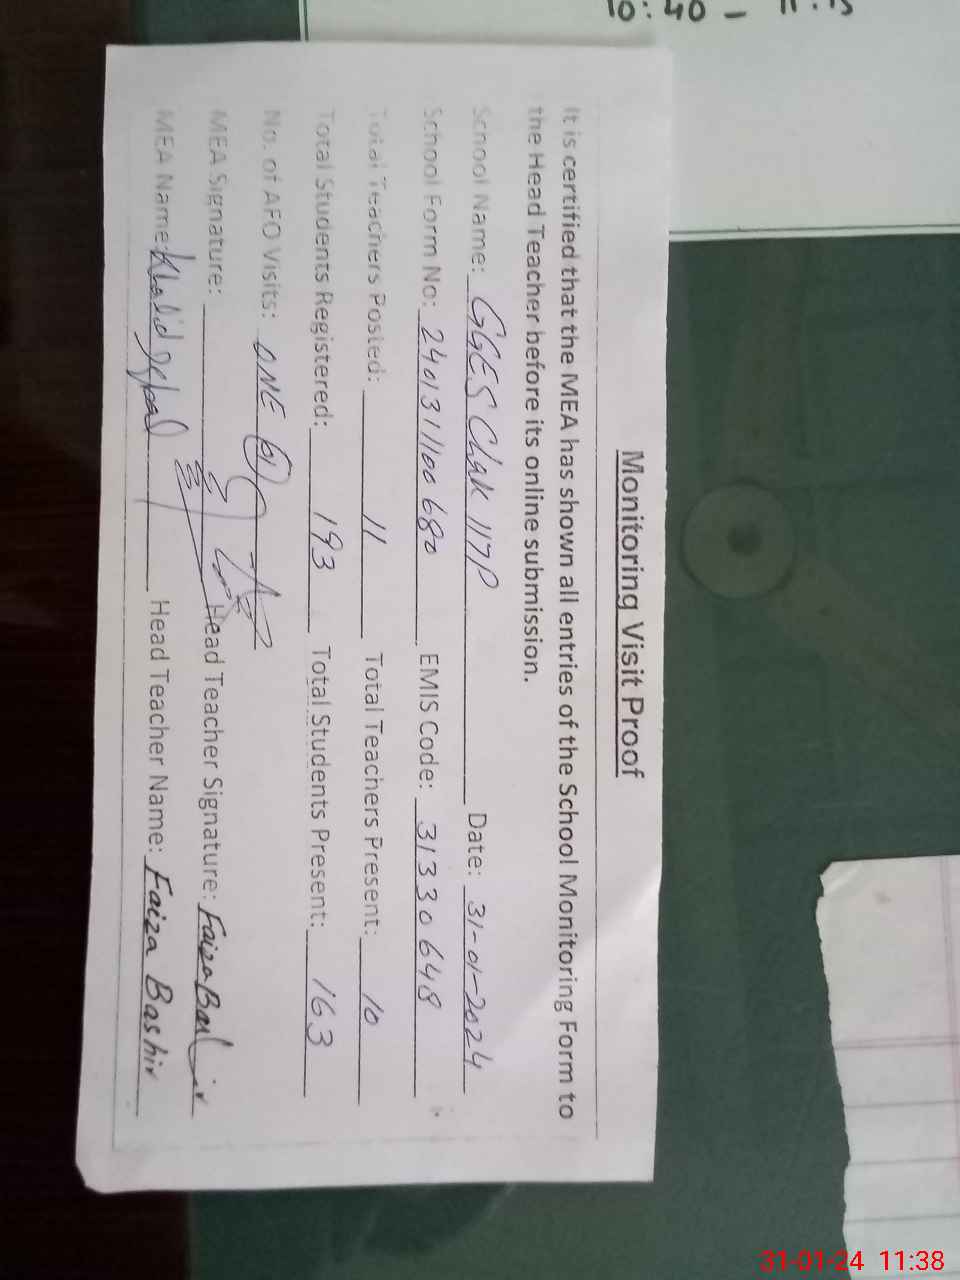 10:40 -
Monitoring Visit Proof
It is certified that the MEA has shown all entries of the School Monitoring Form to
the Head Teacher before its online submission.
School Name: GGES Chak 117P Date: 31-01-2024
School Form No: 240131100680 EMIS Code: 31330648
Total Teachers Posted: 11 Total Teachers Present: 10
Total Students Registered: 193 Total Students Present: 163
No. of AEO Visits: ONE
MEA Signature: Head Teacher Signature: Faiza Bashir
MEA Name: Khalid Iqbal Head Teacher Name: Faiza Bashir
31-01-24 11:38